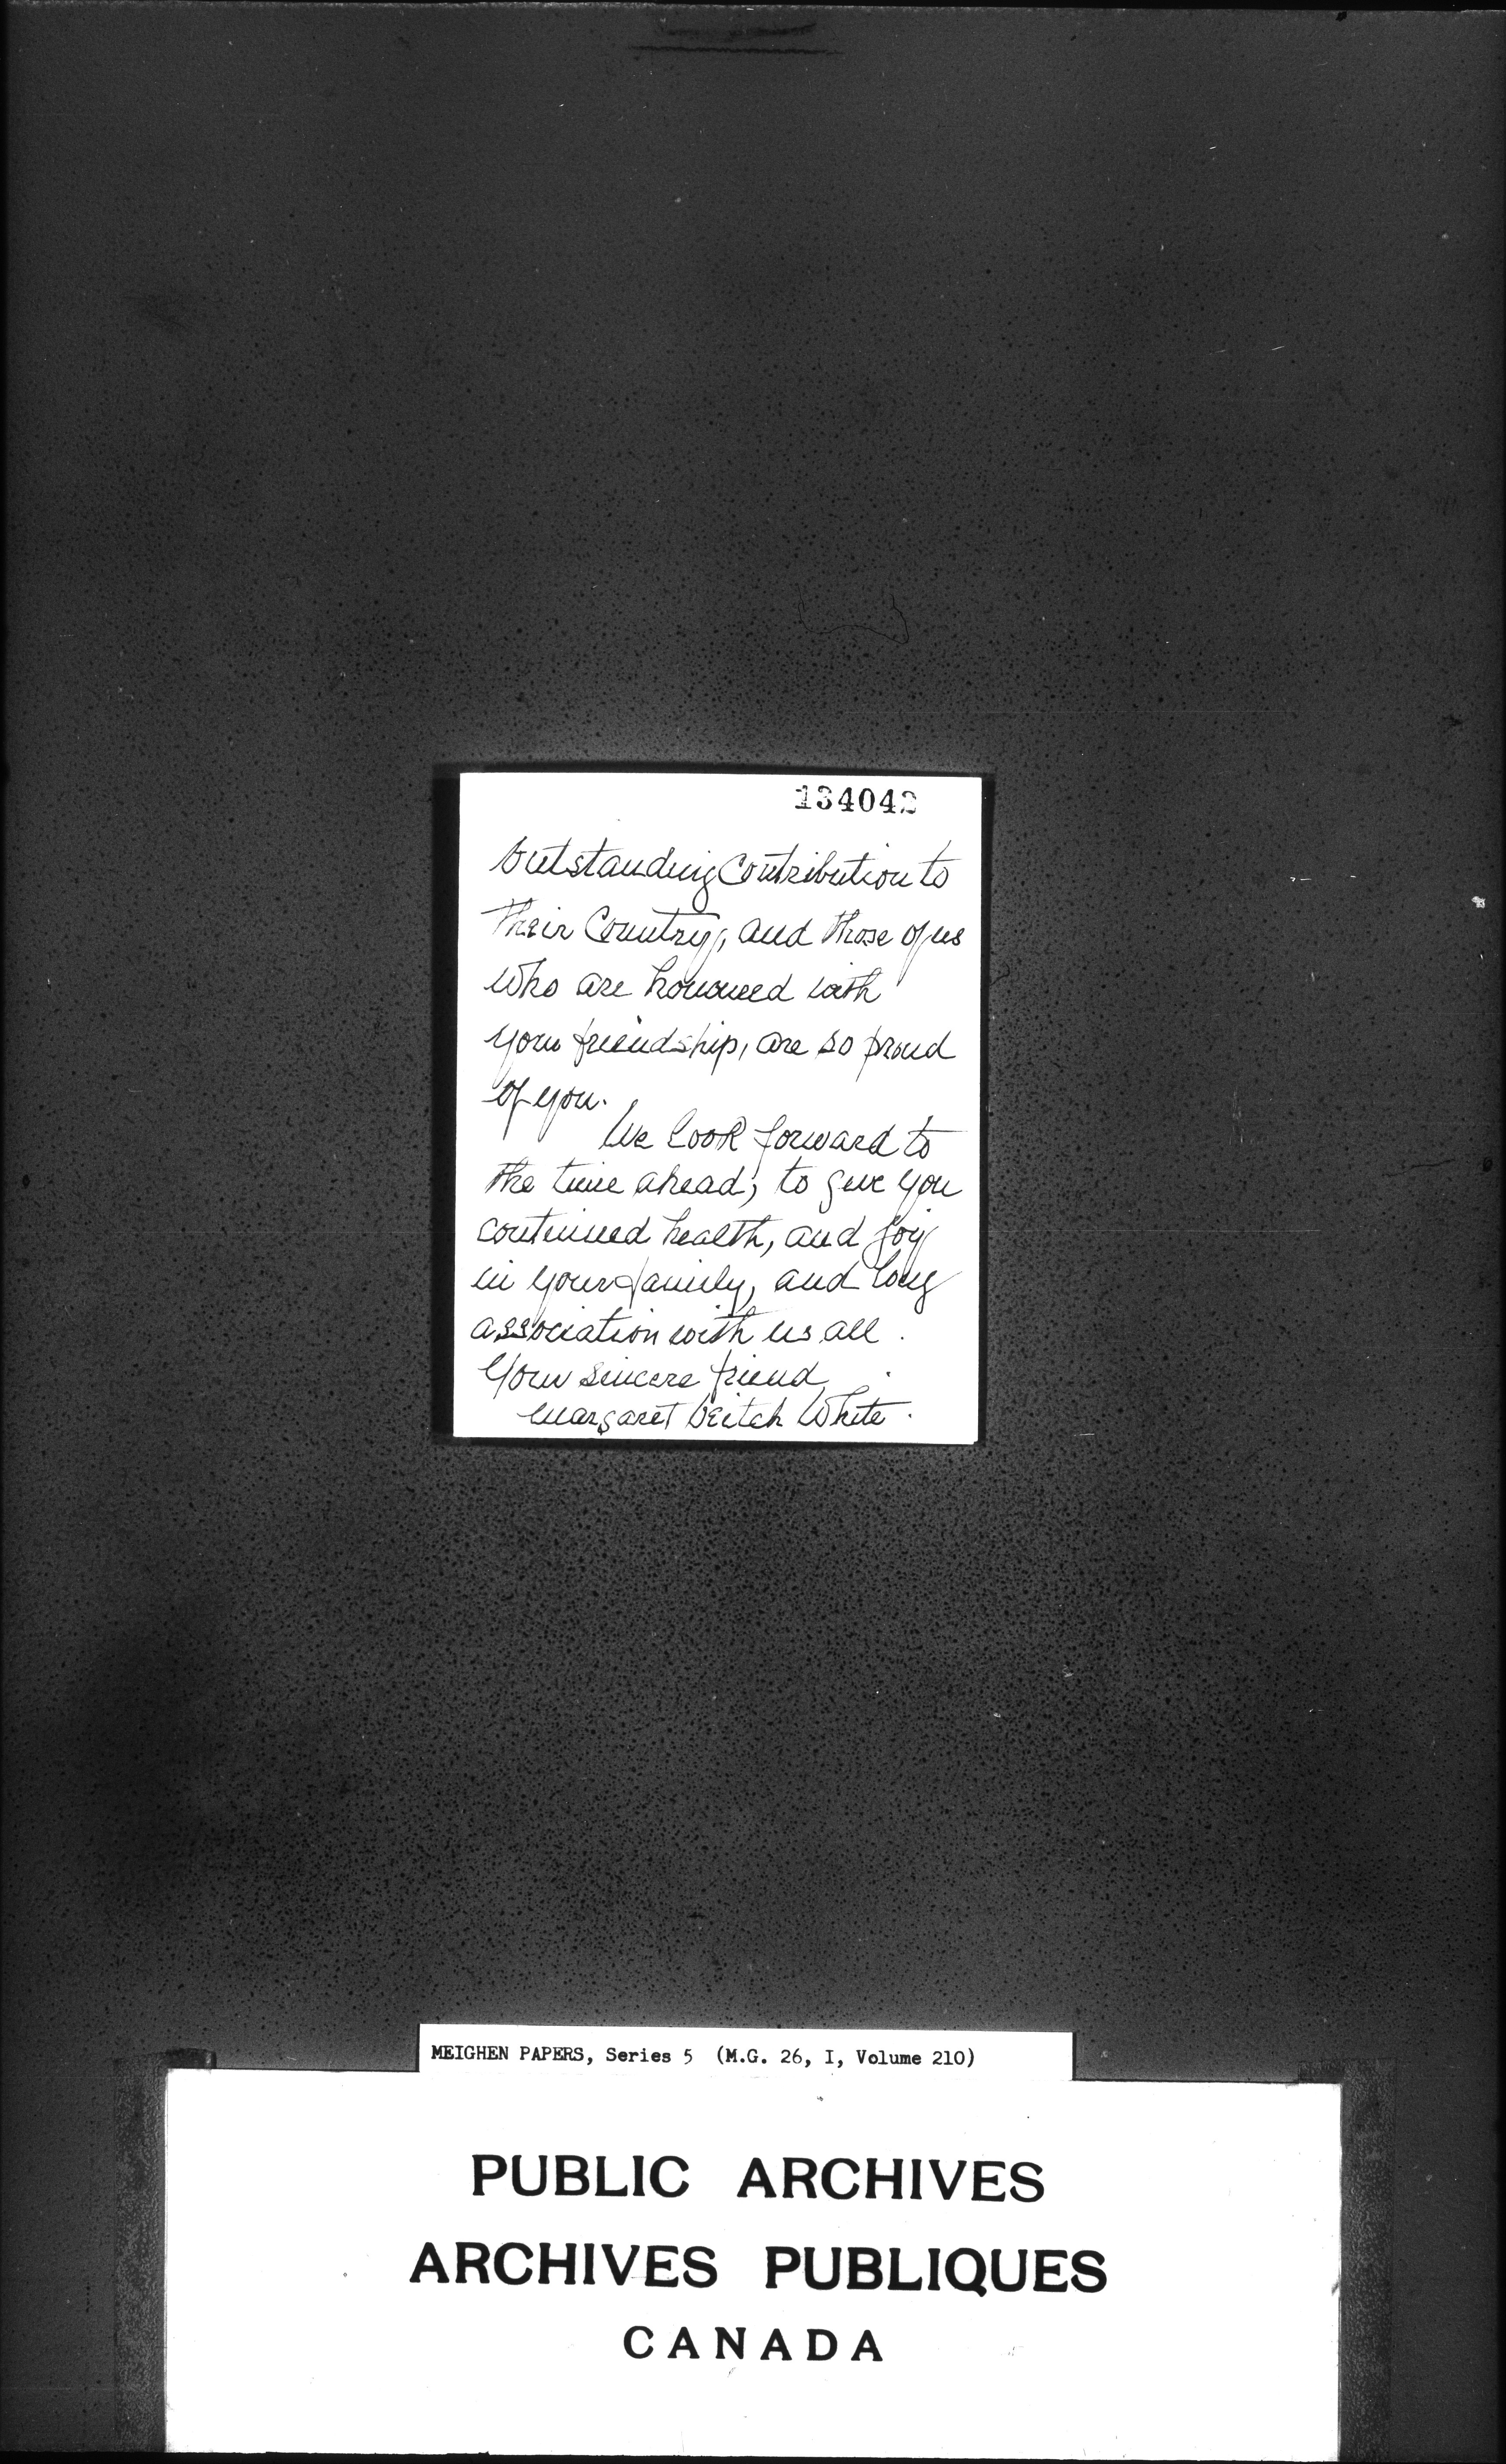 134042
Outstanding Contribution to
Their Country, and those of us
who are honoured with
your friendship, are so proud
of you.
We look forward to
the time ahead, to give you
continued health, and joy
in your family, and long
association with us all.
Your sincere friend
Margaret Veitch White.
MEIGHEN PAPERS, Series 5 (M.G. 26, I, Volume 210)
PUBLIC ARCHIVES
ARCHIVES PUBLIQUES
CANADA